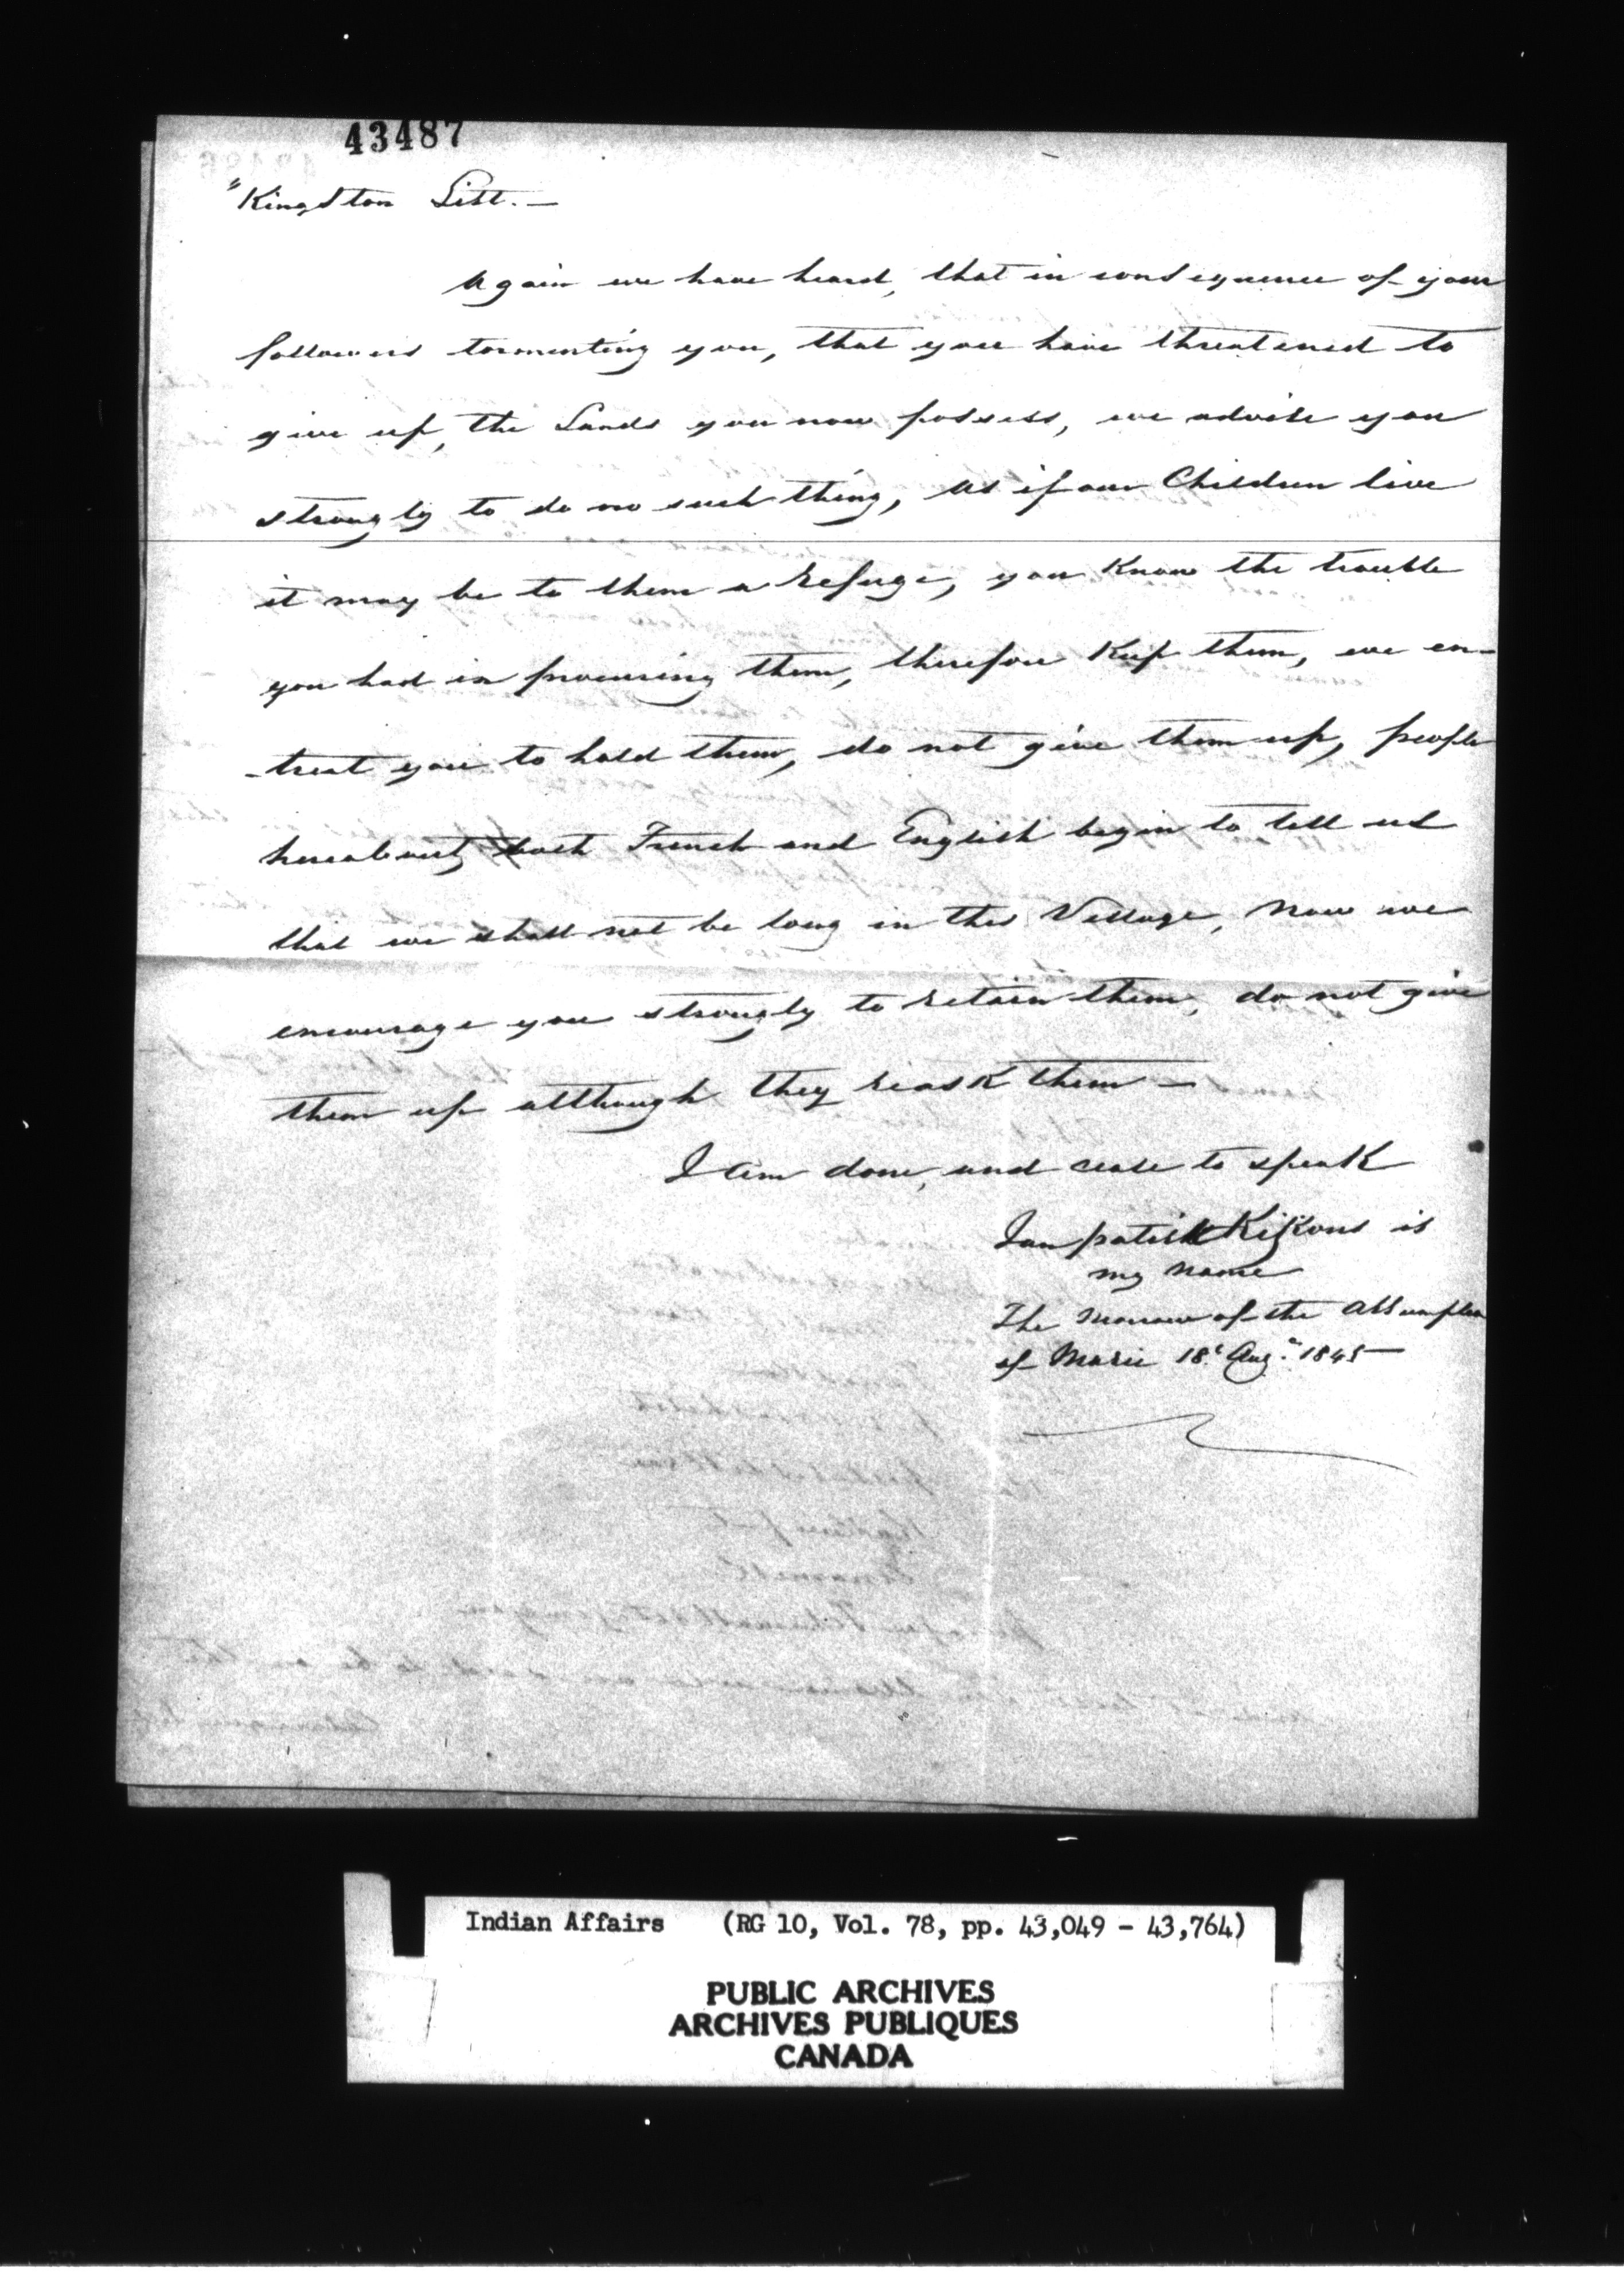 43487
"Kingston List. —
Again we have heard, that in consequence of your
followers tormenting you, that you have threatened to
give up, the Lands you now possess, we advise you
strongly to do no such thing, as if our Children live
it may be to them a refuge, you Know the trouble
you had in procuring them, therefore Keep them, we en-
-treat you to hold them, do not give them up, people
hereabout, both French and English begin to tell us
that we shall not be long in this Village, Now we
encourage you strongly to retain them, do not give
them up although they reask them —
I am done, and cease to speak
Kijkons is
my name
The morrow of the Assumption
of Marie 18 Aug. 1845 —
Indian Affairs (RG 10, Vol. 78, pp. 43,049 - 43,764)
PUBLIC ARCHIVES
ARCHIVES PUBLIQUES
CANADA